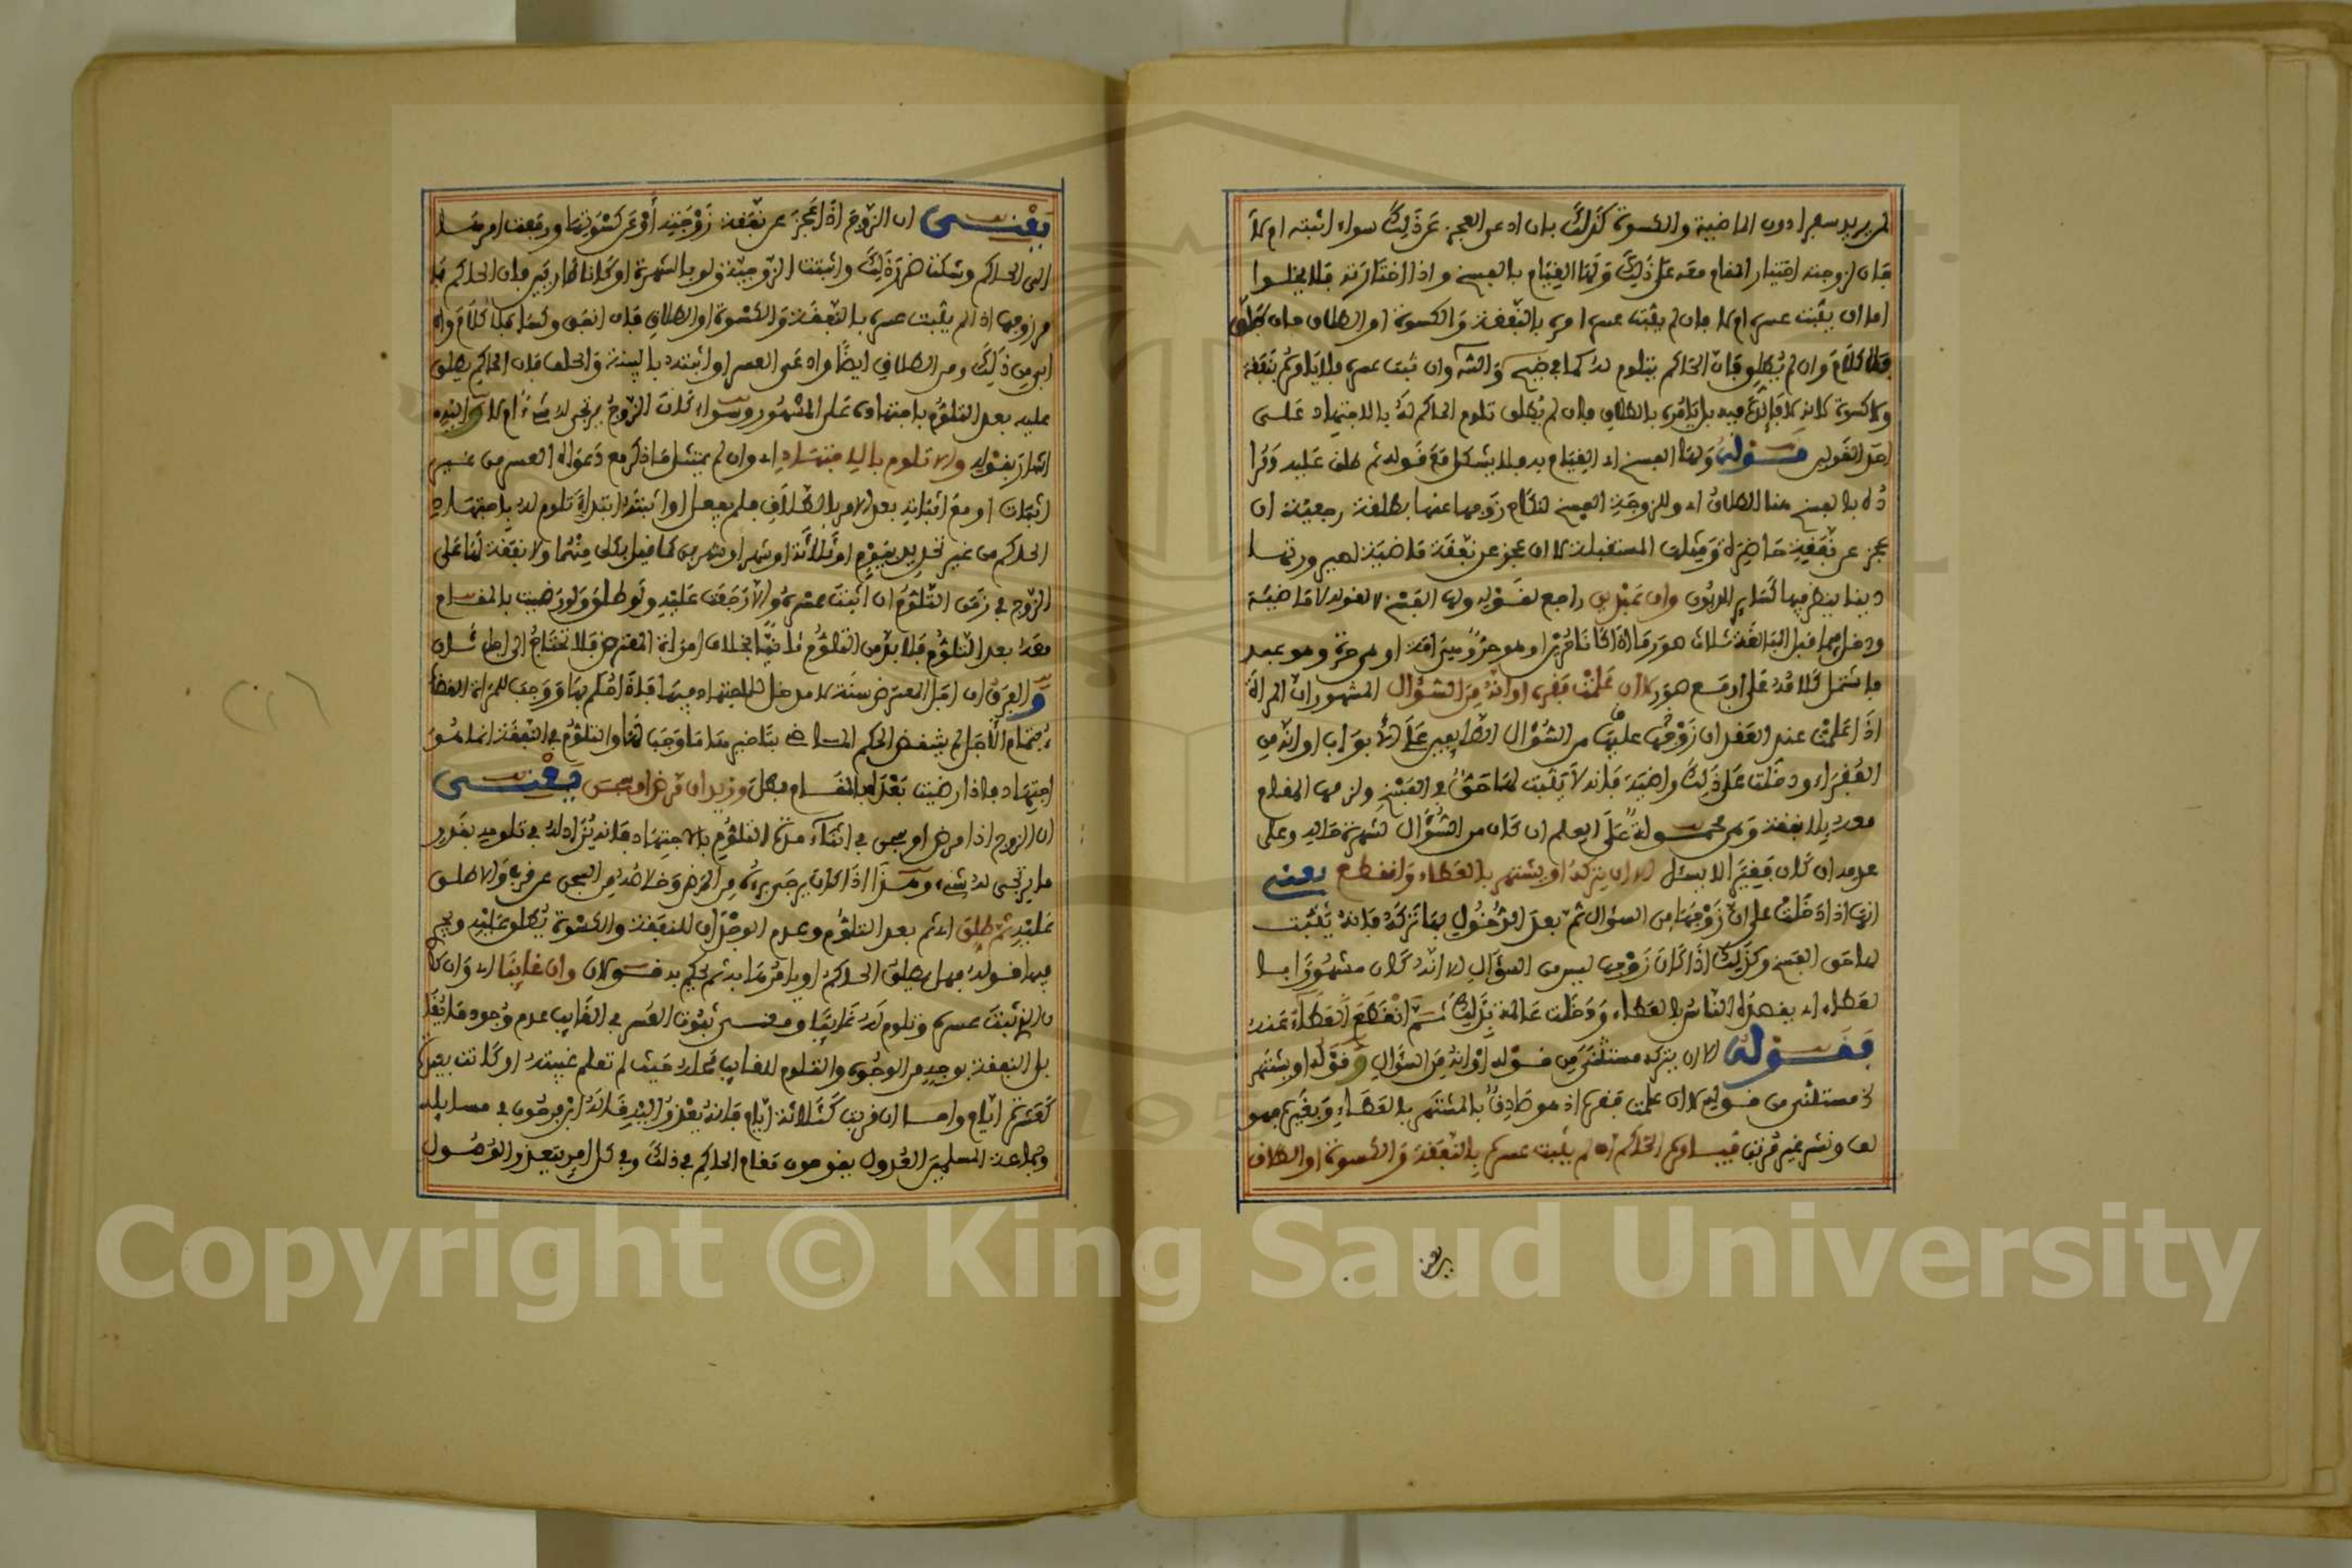 لم يريد سفرا دون الماضية والكسوة كذلك بان ادعى العجز عن ذلك سواء اثبته ام لا
فان لزوجته اختيار المقام معه على ذلك ولها القيام بالفسخ واذا اختارته فلا يخلوا
اما ان يثبت عسره ام لا فان لم يثبت عسره امره بالنفقة والكسوة او الطلاق فان طلق
فلا كلام وان لم يطلق فان الحاكم يتلوم له كما في ضيح والشه وان ثبت عسره فلا يامره بنفقة
ولا كسوة لانه لا فائدة فيه بل يامره بالطلاق فان لم يطلق تلوم الحاكم له بالاجتهاد على
احد القولين قوله ولها الفسخ اي القيام به فلا يشكل مع قوله ثم طلق عليه
بالفسخ هنا الطلاق اي وللزوجة الفسخ لنكاح زوجها عنها بطلقة رجعية ان
عجز عن نفقة حاضرة ومثلها المستقبلة لا ان عجز عن نفقة ماضية لصيرورتها
دينا ينظر فيها كساير الديون وان عبدين راجع لقوله ولها الفسخ لا لقوله لا ماضية
ودخل فيما قبل المبالغة ثلاث صور ما اذا كانا حرين او هو حر وهي امة او هي حرة وهو عبد
فاشتمل كلامه على اربع صور لا ان علمت فقره او انه من السؤال المشهور ان المراة
اذا علمت عند العقد ان زوجها عليها من السؤال الطايفين على الابواب او انه من
الفقراء ودخلت على ذلك راضية فانه لا يثبت لها حق في الفسخ ولزمها المقام
معه بلا نفقة وهي محمولة على العلم ان كان من السؤال لشهرة حاله وعلى
عدمه ان كان فقيرا لا يسئل الا ان يتركه او يشتهر بالعطاء وانقطع يعني
انها اذا دخلت على ان زوجها من السؤال ثم بعد الدخول بها تركه فانه يثبت
لها حق الفسخ وكذلك اذا كان زوجها ليس من السؤال الا انه كان مشهورا بالـ
لعطاء اي يقصده الناس بالعطاء ودخلت عالمة بذلك ثم انقطع العطاء عنه
فقوله الا ان يتركه مستثنى من قوله او انه من السؤال وقوله او يشتهر
مستثنى من قوله لا ان علمت فقره اذ هو صادق بالمشتهر بالعطاء وبغيره فهو
لف ونشر غير مرتب فيامره الحاكم ان لم يثبت عسره بالنفقة والكسوة او الطلاق
يعني
يعني ان الزوج اذا عجز عن نفقة زوجته او عن كسوتها ورفعت امرها
الى الحاكم وشكت ضرر ذلك واثبتت الزوجية ولو بالشهرة او كانا طاريين فان الحاكم يا
مر زوجها اذا لم يثبت عسره بالنفقة والكسوة او الطلاق فان انفق وكسا فلا كلام وان
ابى من ذلك ومن الطلاق ايضا وادعى العسر او اثبته بالبينة والحلف فان الحاكم يطلق
عليه بعد التلوم باجتهاده على المشهور وسواء كان الزوج يرتجى له شيء ام لا واليه
اشار بقوله والا تلوم بالاجتهاد اي وان لم يمتثل ما ذكر مع دعواه العسر من غير
اثبات او مع اثباته بعد الامر بالطلاق فلم يفعل او اثبته ابتداء تلوم له باجتهاد
الحاكم من غير تحديد بيوم او ثلاثة او شهر او شهرين كما قيل بكل منهما ولا نفقة لها على
الزوج في زمن التلوم ان اثبت عسره والا رجعت عليه ولو طلق ولو رضيت بالمقام
معه بعد التلوم فلا بد من التلوم ثانيا بخلاف امراة المعترض فلا تحتاج الى اجل ثان
والفرق ان اجل المعترض سنة لا مدخل للاجتهاد فيها فاذا حكم بها ووجب للمراة القضاء
بتمام الاجل لم ينتقض الحكم الماضي بتاخيرها ما وجب لها والتلوم في النفقة انما هو
اجتهاد فاذا رضيت بعده بالمقام بطل وزيد ان مرض او سجن يعني
ان الزوج اذا مرض او سجن في اثناء مدة التلوم بالاجتهاد فانه يزاد له في تلومه بقدر
ما يرتجى له بشيء وهذا اذا كان يرجى برءه من المرض وخلاصه من السجن عن قرب والا طلق
عليه ثم طلق اي ثم بعد التلوم وعدم الوجدان للنفقة والكسوة يطلق عليه ويجري
فيها قوله فهل يطلق الحاكم او يامرها به ثم يحكم به قولان وان غايبا اي وان كان
الذي ثبت عسره وتلوم له غايبا ومعنى ثبوت العسر في الغايب عدم وجود ما يقا
بل النفقة بوجه من الوجوه والتلوم للغايب محله حيث لم تعلم غيبته او كانت بعيدة
كعشرة ايام واما ان قربت كثلاثة ايام فانه يعذر اليه قاله ابن فرحون في مسايله
وجماعة المسلمين العدول يقومون مقام الحاكم في ذلك وفي كل امر يتعذر الوصول
Copyright © King Saud University